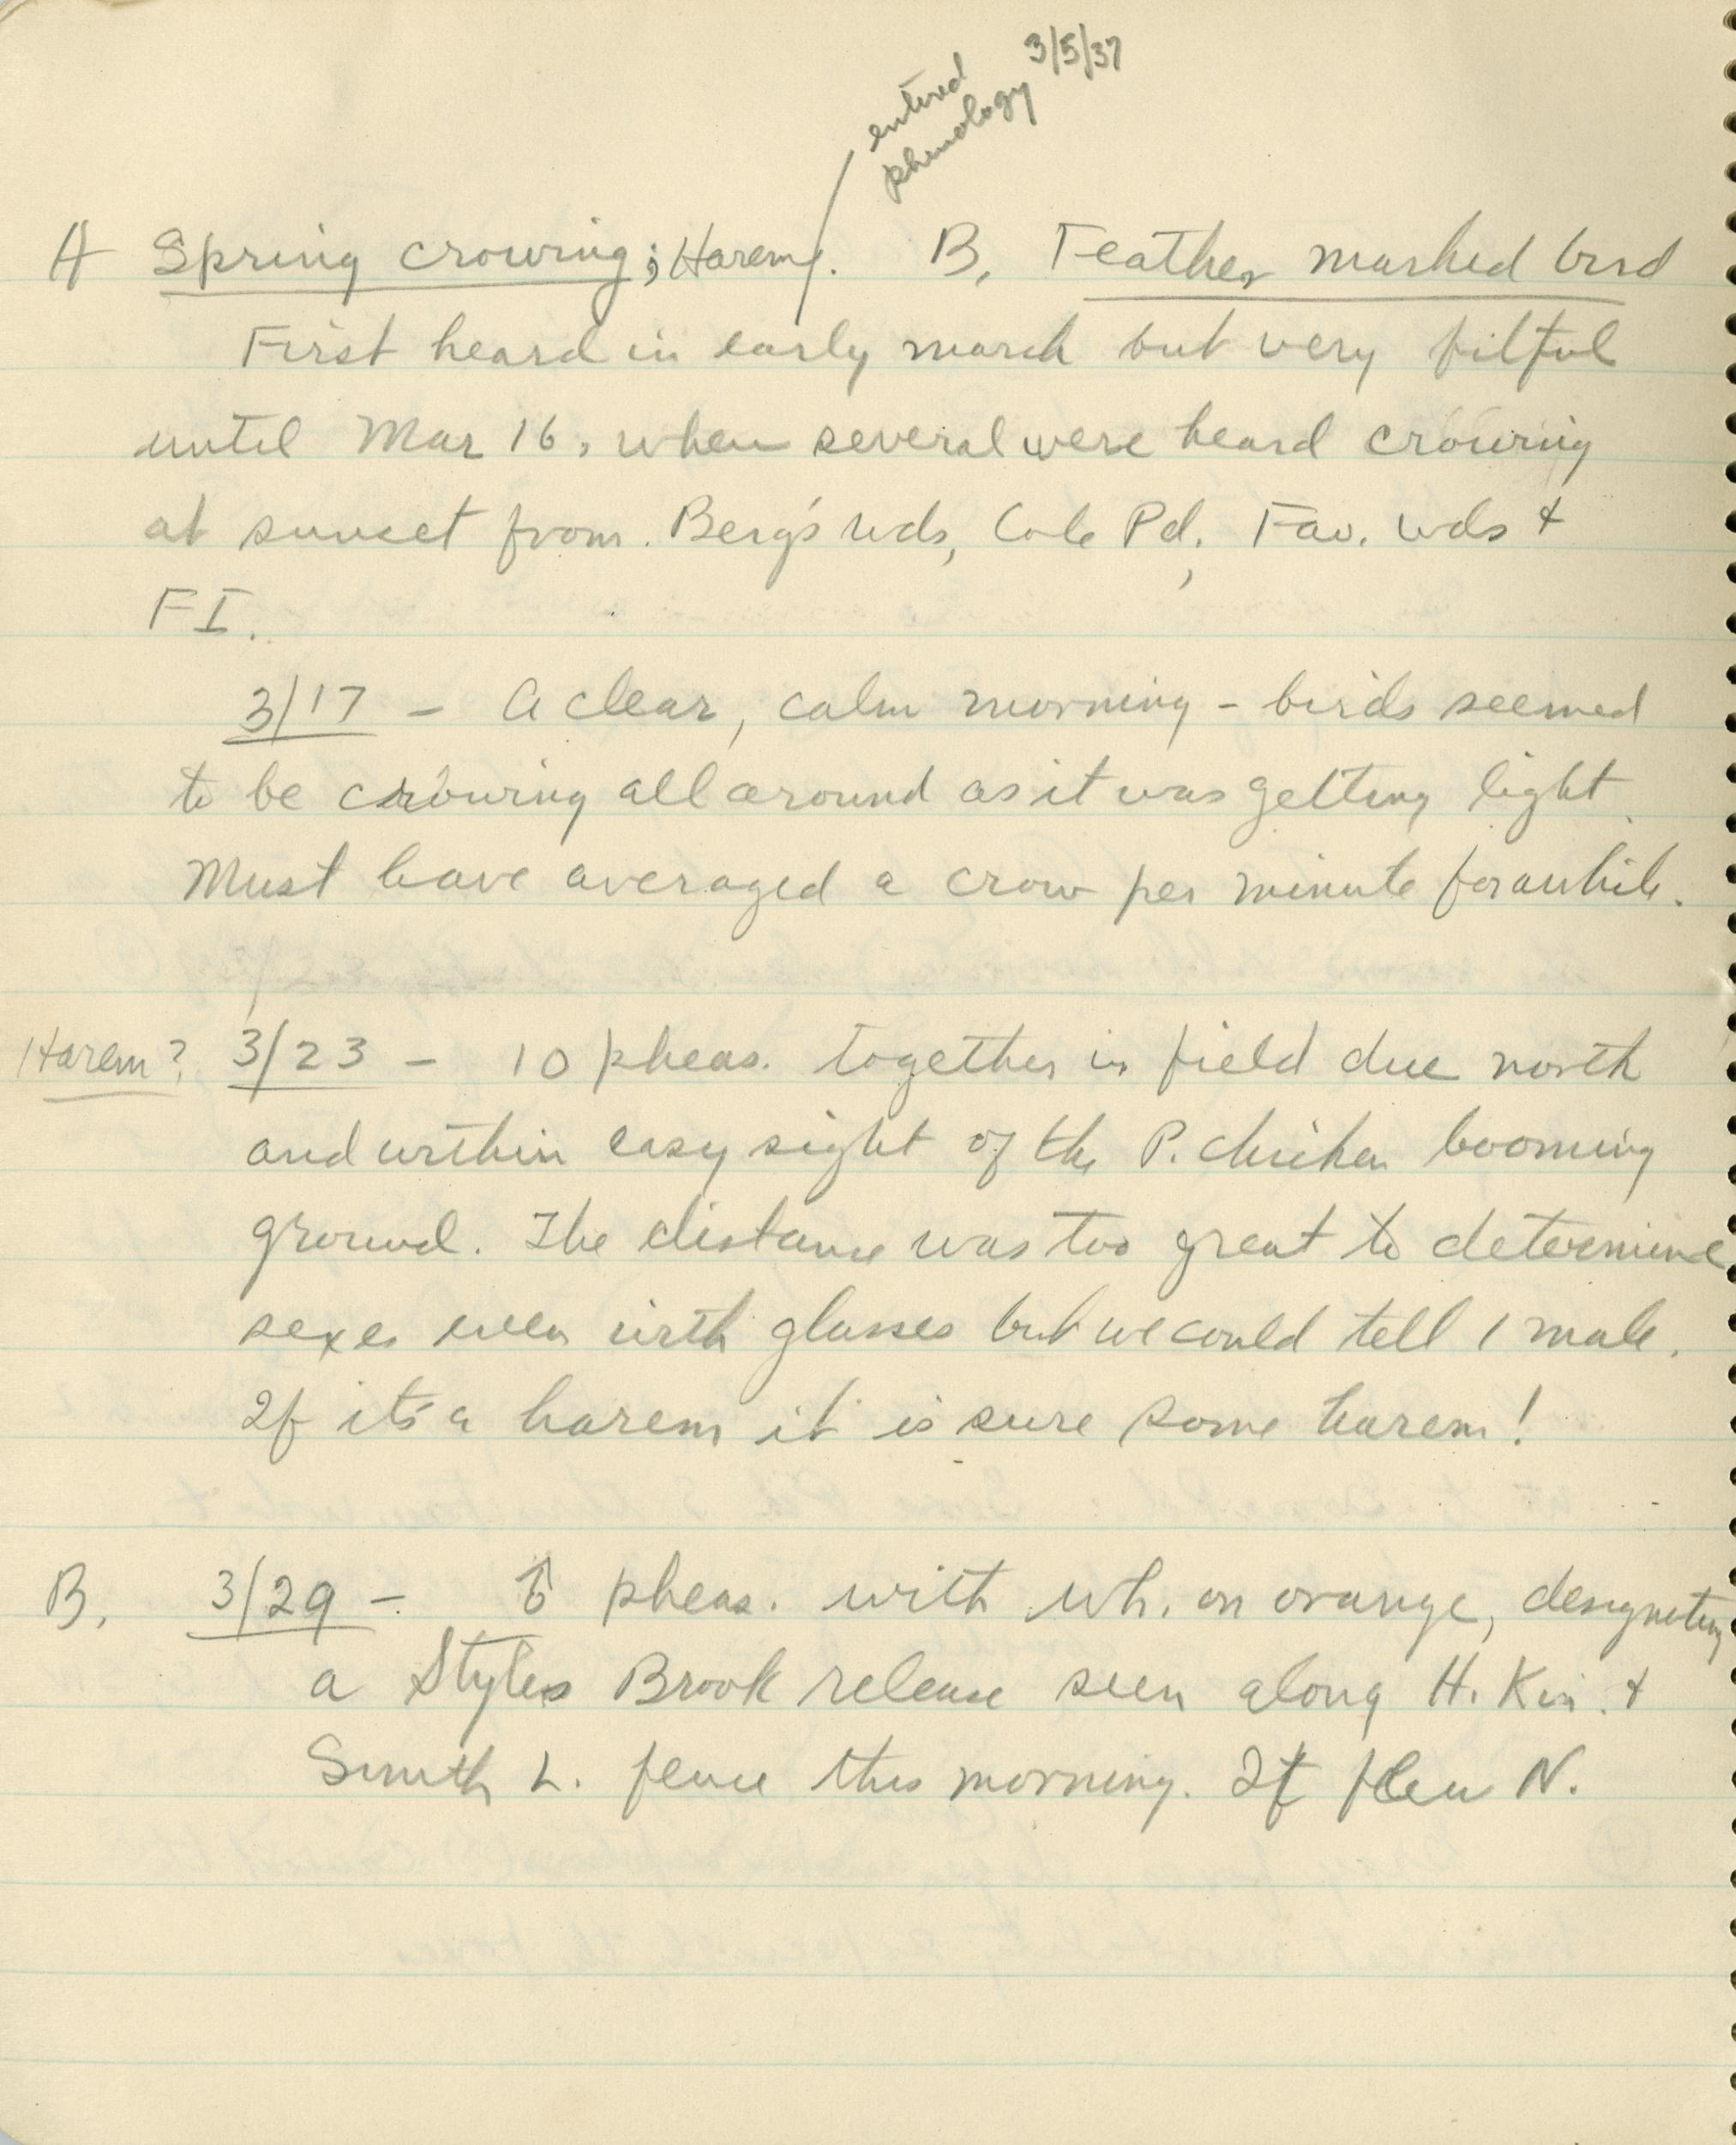 entered
phenology 3/5/37
A Spring crowing; Harem. B. Feather marked bird
First heard in early march but very fitful
until Mar 16, when several were heard crowing
at sunset from Berg's wds, Cole Pd, Fav. wds +
FI.
3/17 - A clear, calm morning - birds seemed
to be crowing all around as it was getting light.
Must have averaged a crow per minute for awhile.
Harem? 3/23 - 10 pheas. together in field due north
and within easy sight of the P. chicken booming
ground. The distance was too great to determine
sexes even with glasses but we could tell 1 male.
If it's a harem it is sure some harem!
B. 3/29 - pheas. with wh. on orange, designating
a Styles Brook release seen along H. Kin. +
Smith L. fence this morning. It flew N.